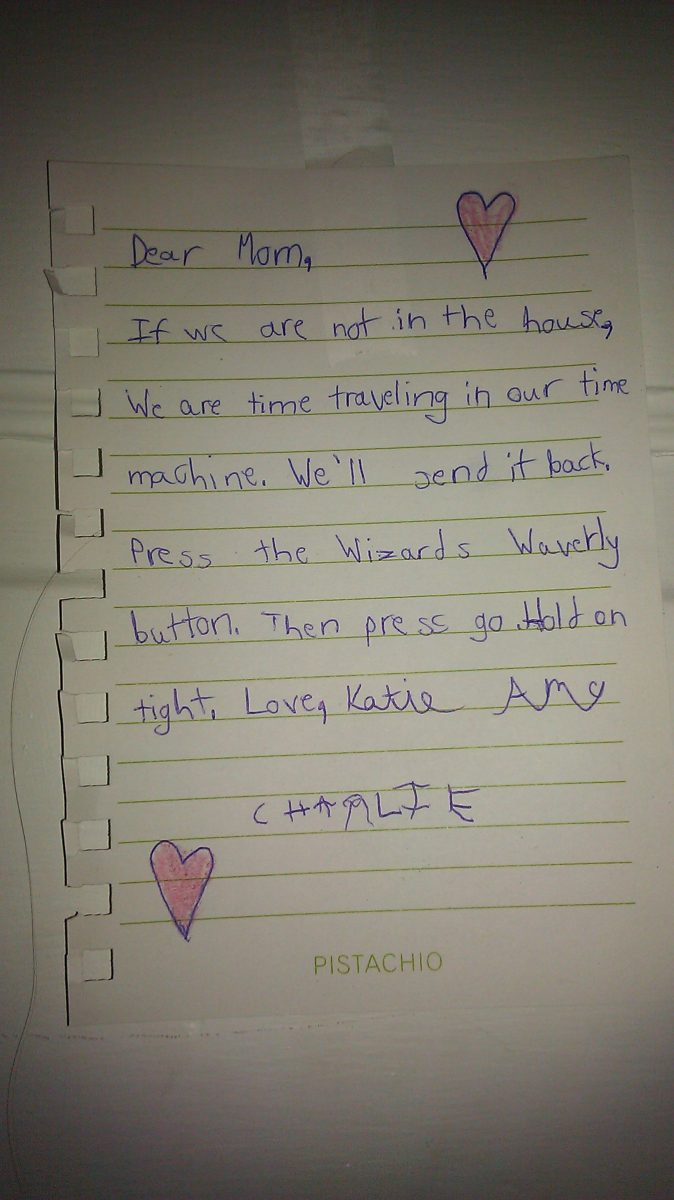 Dear Mom,
If we are not in the house,
We are time traveling in our time
machine. We'll send it back.
Press the Wizards Waverly
button. Then press go. Hold on
tight. Love, Katie Amy
CHARLIE
PISTACHIO